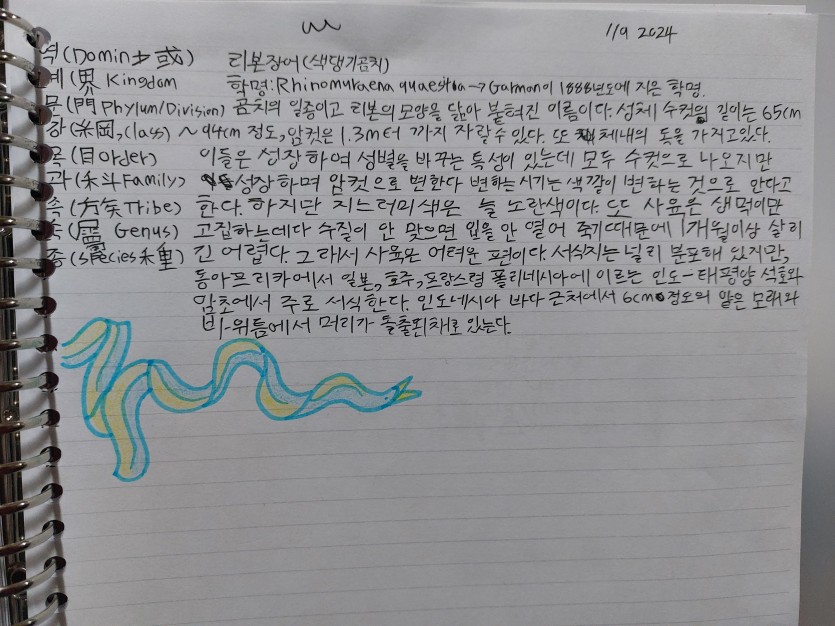 11/9 2024
역(Domin土或) 리본장어(색댕기곰치)
계(界 Kingdom 학명: Rhinomuraena quaesitoa → Garman이 1888년도에 지은 학명.
문(門 Phylum/Division) 곰치의 일종이고 리본의 모양을 닮아 붙혀진 이름이다. 성체 수컷의 길이는 65cm
강(糸岡,class) ~ 94cm 정도, 암컷은 1.3m터 까지 자랄수 있다. 또 체내의 독을 가지고있다.
목(目order) 이들은 성장하여 성별을 바꾸는 특성이 있는데 모두 수컷으로 나오지만
과(禾斗Family) 성장하며 암컷으로 변한다 변화는 시기는 색깔이 변화는 것으로 안다고
족(方矢Tribe) 한다. 하지만 지느러미색은 늘 노란색이다. 또 사육은 생먹이만
속( Genus) 고집하는데다 수질이 안 맞으면 입을 안 열어 죽기때문에 1개월이상 살리
종(species 禾重) 긴 어렵다. 그래서 사육은 어려운 편이다. 서식지는 널리 분포돼 있지만,
동아프리카에서 일본, 호주, 프랑스령 폴리네시아에 이르는 인도-태평양 석호와
암초에서 주로 서식한다. 인도네시아 바다 근처에서 6cm정도의 얕은 모래와
바위틈에서 머리가 돌출된채로 있는다.